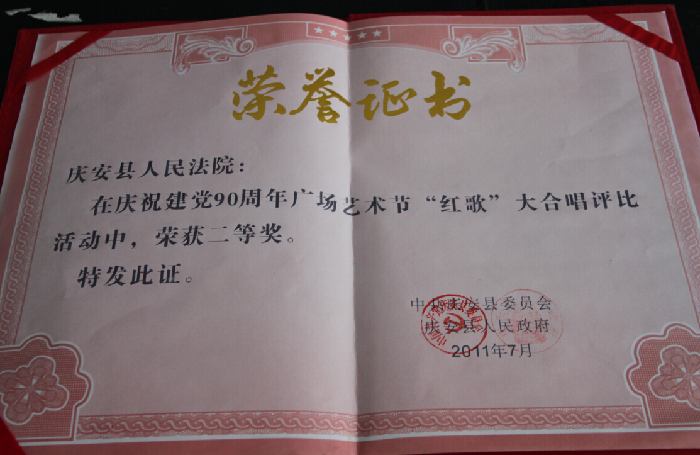 荣誉证书
庆安县人民法院：
在庆祝建党90周年广场艺术节“红歌”大合唱评比
活动中，荣获二等奖。
特发此证。
中共庆安县委员会
庆安县人民政府
2011年7月